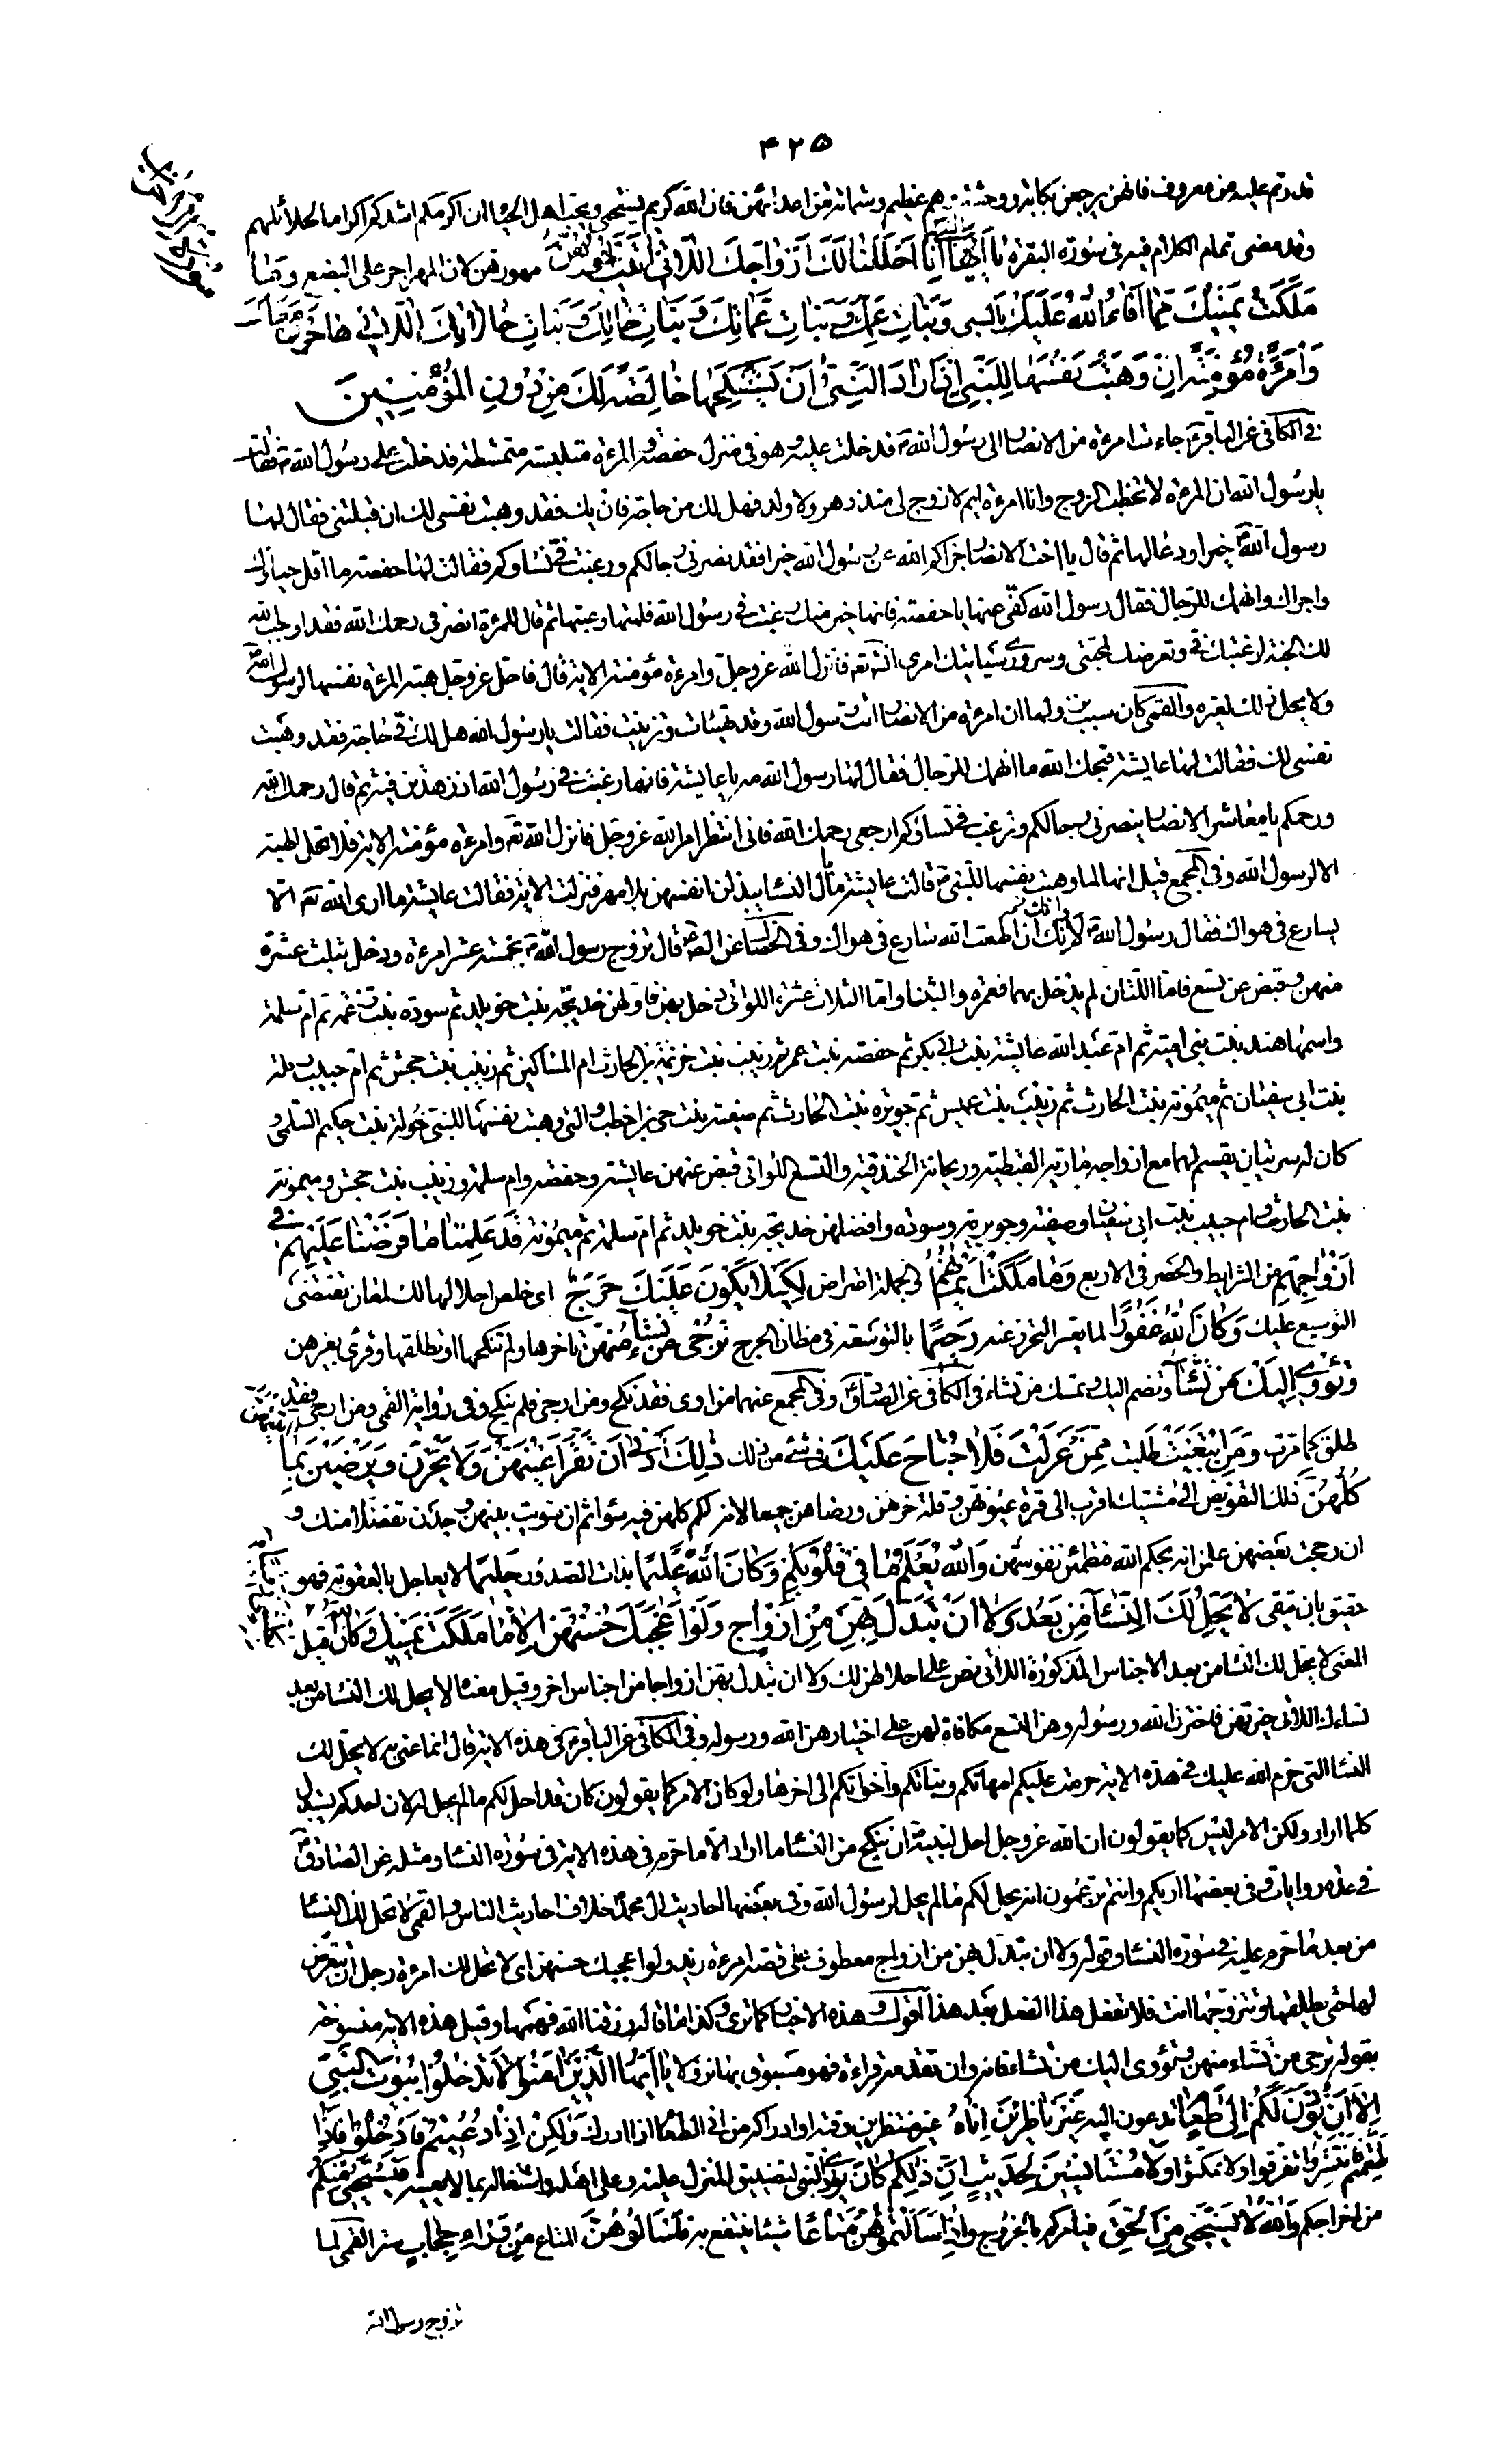 ٤٢٥
قدرتم عليه من معروف فانهن يرجعن بكابة ووحشة وهم عظيم وشماتة من اعدائهن فان الله كريم يستحيي ويحب اهل الحياء ان اكرمكم اشدكم اكراما لحلائلهم
وقد مضى تمام الكلام فيه في سورة البقرة يا اَيُّهَا النَّبِيُّ اِنَّا اَحْلَلْنَا لَكَ اَزْوَاجَكَ اللَّاتِي اٰتَيْتَ اُجُورَهُنَّ مهورهن كان المهر اجر على البضع وَمَا
مَلَكَتْ يَمِينُكَ مِمَّا اَفَاءَ اللّٰهُ عَلَيْكَ بالسبي وَبَنَاتِ عَمِّكَ وَبَنَاتِ عَمَّاتِكَ وَبَنَاتِ خَالِكَ وَبَنَاتِ خَالَاتِكَ اللَّاتِي هَاجَرْنَ مَعَكَ
وَامْرَئَةً مُؤْمِنَةً اِنْ وَهَبَتْ نَفْسَهَا لِلنَّبِيِّ اِنْ اَرَادَ النَّبِيُّ اَنْ يَسْتَنْكِحَهَا خَالِصَةً لَكَ مِنْ دُونِ الْمُؤْمِنِينَ
في الكافي عن الباقر ع جاءت امرءة من الانصار الى رسول الله ص فدخلت عليه وهو في منزل حفصة والمرءة متلبسة متمشطة فدخلت على رسول الله ص فقالت
يا رسول الله ان المرءة لا تخطب الزوج وانا امرءة ايم لا زوج لي منذ دهر ولا ولد فهل لك من حاجة فان يك فقد وهبت نفسي لك ان قبلتني فقال لها
رسول الله ص خيرا ودعا لها ثم قال يا اخت الانصار جزاكم الله عن رسول الله خيرا فقد نصرني رجالكم ورغبت في نساؤكم فقالت لها حفصة ما اقل حياءك
واجراك وانهمك للرجال فقال رسول الله كفي عنها يا حفصة فانها خير منك رغبت في رسول الله فلمتها وعبتها ثم قال للمرءة انصرفي رحمك الله فقد اوجب الله
لك الجنة لرغبتك في وتعرضك لمحبتي وسروري سياتيك امري انشاء الله تعالى فانزل الله عز وجل وامرءة مؤمنة الاية قال فاحل عز وجل هبة المرءة نفسها لرسول الله ص
ولا يحل ذلك لغيره والقمي كان سبب نزولها ان امرءة من الانصار اتت رسول الله وقد تهيئات وتزينت فقالت يا رسول الله هل لك في حاجة فقد وهبت
نفسي لك فقالت لها عايشة قبحك الله ما انهمك للرجال فقال لها رسول الله مه يا عايشة فانها رغبت في رسول الله اذ زهدتن فيه ثم قال رحمك الله
ورحمكم يا معاشر الانصار ينصرني رجالكم وترغب في نساؤكم ارجعي رحمك الله فاني انتظر امر الله عز وجل فانزل الله تعالى وامرءة مؤمنة الاية فلا تحل الهبة
الا لرسول الله وفي المجمع قيل انها لما وهبت نفسها للنبي ص قالت عايشة ما بال النساء يبذلن انفسهن بلا مهر فنزلت الاية فقالت عايشة ما ارى الله تعالى الا
يسارع في هواك فقال رسول الله ص وانك ان اطعت الله سارع في هواك وفي الخصال عن الصادق ع قال تزوج رسول الله ص بخمسة عشر امرءة ودخل بثلث عشرة
منهن وقبض عن تسع فاما اللتان لم يدخل بهما فعمرة والشنبا واما الثلاث عشرة اللواتي دخل بهن فاولهن خديجة بنت خويلد ثم سودة بنت زمعة ثم ام سلمة
واسمها هند بنت ابي امية ثم ام عبد الله عايشة بنت ابي بكر ثم حفصة بنت عمر ثم زينب بنت خزيمة بن الحارث ام المساكين ثم زينب بنت جحش ثم ام حبيب رملة
بنت ابي سفيان ثم ميمونة بنت الحارث ثم زينب بنت عميس ثم جويرة بنت الحارث ثم صفية بنت حي بن اخطب والتي وهبت نفسها للنبي خولة بنت حكيم السلمي و
كان له سريتان يقسم لهما مع ازواجه مارية القبطية وريحانة الخندقية والتسع اللواتي قبض عنهن عايشة وحفصة وام سلمة وزينب بنت جحش وميمونة
بنت الحارث وام حبيب بنت ابي سفيان وصفية وجويرية وسودة وافضلهن خديجة بنت خويلد ثم ام سلمة ثم ميمونة قَدْ عَلِمْنَا مَا فَرَضْنَا عَلَيْهِمْ فِي
اَزْوَاجِهِمْ من الشرايط والحصر في الاربع وَمَا مَلَكَتْ اَيْمَانُهُمْ والجملة اعتراض لِكَيْلَا يَكُونَ عَلَيْكَ حَرَجٌ اي خلص احلالها لك لمعان تقتضي
التوسيع عليك وَكَانَ اللّٰهُ غَفُورًا لما يعسر التحرز عنه رَحِيمًا بالتوسعة في مظان الحرج تُرْجِي مَنْ تَشَاءُ مِنْهُنَّ تاخرها ولم تنكحها او تطلقها وقرئ بغير همز
وَتُؤْوِي اِلَيْكَ مَنْ تَشَاءُ وتضم اليك وتمسك من تشاء في الكافي عن الصادق ع وفي المجمع عنهما من اوى فقد نكح ومن ارجى فلم ينكح وفي رواية القمي ومن ارجى فقد
طلق كما مرت وَمَنِ ابْتَغَيْتَ طلبت مِمَّنْ عَزَلْتَ فَلَا جُنَاحَ عَلَيْكَ في شئ من ذلك ذٰلِكَ اَدْنٰى اَنْ تَقَرَّ اَعْيُنُهُنَّ وَلَا يَحْزَنَّ وَيَرْضَيْنَ بِمَا اٰتَيْتَهُنَّ
كُلُّهُنَّ ذلك التفويض الى مشيتك اقرب الى قرة عيونهن وقلة حزنهن ورضاهن جميعا لانه حكم كلهن فيه سواء ثم ان سويت بينهن وجدن تفضلا منك و
ان رجحت بعضهن علمن انه بحكم الله فتطمئن نفوسهن وَاللّٰهُ يَعْلَمُ مَا فِي قُلُوبِكُمْ وَكَانَ اللّٰهُ عَلِيمًا بذات الصدور حَلِيمًا لا يعاجل بالعقوبة فهو
حقيق بان يتقى لَا يَحِلُّ لَكَ النِّسَاءُ مِنْ بَعْدُ وَلَا اَنْ تَبَدَّلَ بِهِنَّ مِنْ اَزْوَاجٍ وَلَوْ اَعْجَبَكَ حُسْنُهُنَّ اِلَّا مَا مَلَكَتْ يَمِينُكَ وَكَانَ اللّٰهُ قيل
المعنى لا يحل لك النساء من بعد الاجناس المذكورة اللاتي نص على احلالهن لك ولا ان تبدل بهن ازواجا من اجناس اخر وقيل معناه لا يحل لك النساء من بعد
نساءك اللاتي خيرتهن فاخترن الله ورسوله وهن التسع مكافاة لهن على اختيارهن الله ورسوله وفي الكافي عن الباقر ع في هذه الاية قال انما عنى به لا يحل لك
النساء التي حرم الله عليك في هذه الاية حرمت عليكم امهاتكم وبناتكم واخواتكم الى اخرها ولو كان الامر كما يقولون كان قد احل لكم ما لم يحل له لان احدكم يستبدل
كلما اراد ولكن الامر ليس كما يقولون ان الله عز وجل احل لنبيه ص ان ينكح من النساء ما اراد الا ما حرم في هذه الاية في سورة النساء ومثله عن الصادق ع
في عدة روايات وفي بعضها اريكم وانتم تزعمون انه يحل لكم ما لم يحل لرسول الله وفي بعضها احاديث ال محمد خلاف احاديث الناس والقمي لا تحل لك النساء
من بعد ما حرم عليه في سورة النساء وقوله ولا ان تبدل بهن من ازواج معطوف على قصة امرءة زيد ولو اعجبك حسنهن اي لا تحل لك امرءة رجل ان تتعرض
لها حتى يطلقها وتتزوجها انت فلا تفعل هذا الفعل بعد هذا اقول وهذه الاخبار كما ترى وكذا ما قالوه رزقنا الله فهمها وقيل هذه الاية منسوخة
بقوله ترجي من تشاء منهن وتؤوي اليك من تشاء فانه وان تقدمه قراءة فهو مسبوق بها نزولا يَا اَيُّهَا الَّذِينَ اٰمَنُوا لَا تَدْخُلُوا بُيُوتَ النَّبِيِّ
اِلَّا اَنْ يُؤْذَنَ لَكُمْ اِلٰى طَعَامٍ تدعون اليه غَيْرَ نَاظِرِينَ اِنَاهُ غير منتظرين وقته او ادراكه من انى الطعام اذا ادرك وَلٰكِنْ اِذَا دُعِيتُمْ فَادْخُلُوا فَاِذَا
طَعِمْتُمْ فَانْتَشِرُوا تفرقوا ولا تمكثوا وَلَا مُسْتَانِسِينَ لِحَدِيثٍ اِنَّ ذٰلِكُمْ كَانَ يُؤْذِي النَّبِيَّ لتضييق المنزل عليه وعلى اهله واشغاله بما لا يعنيه فَيَسْتَحْيِي مِنْكُمْ
من اخراجكم وَاللّٰهُ لَا يَسْتَحْيِي مِنَ الْحَقِّ فيامركم بالخروج وَاِذَا سَاَلْتُمُوهُنَّ مَتَاعًا شيئا ينتفع به فَاسْاَلُوهُنَّ المتاع مِنْ وَرَاءِ حِجَابٍ ستر القمي لما
تزوج رسول الله